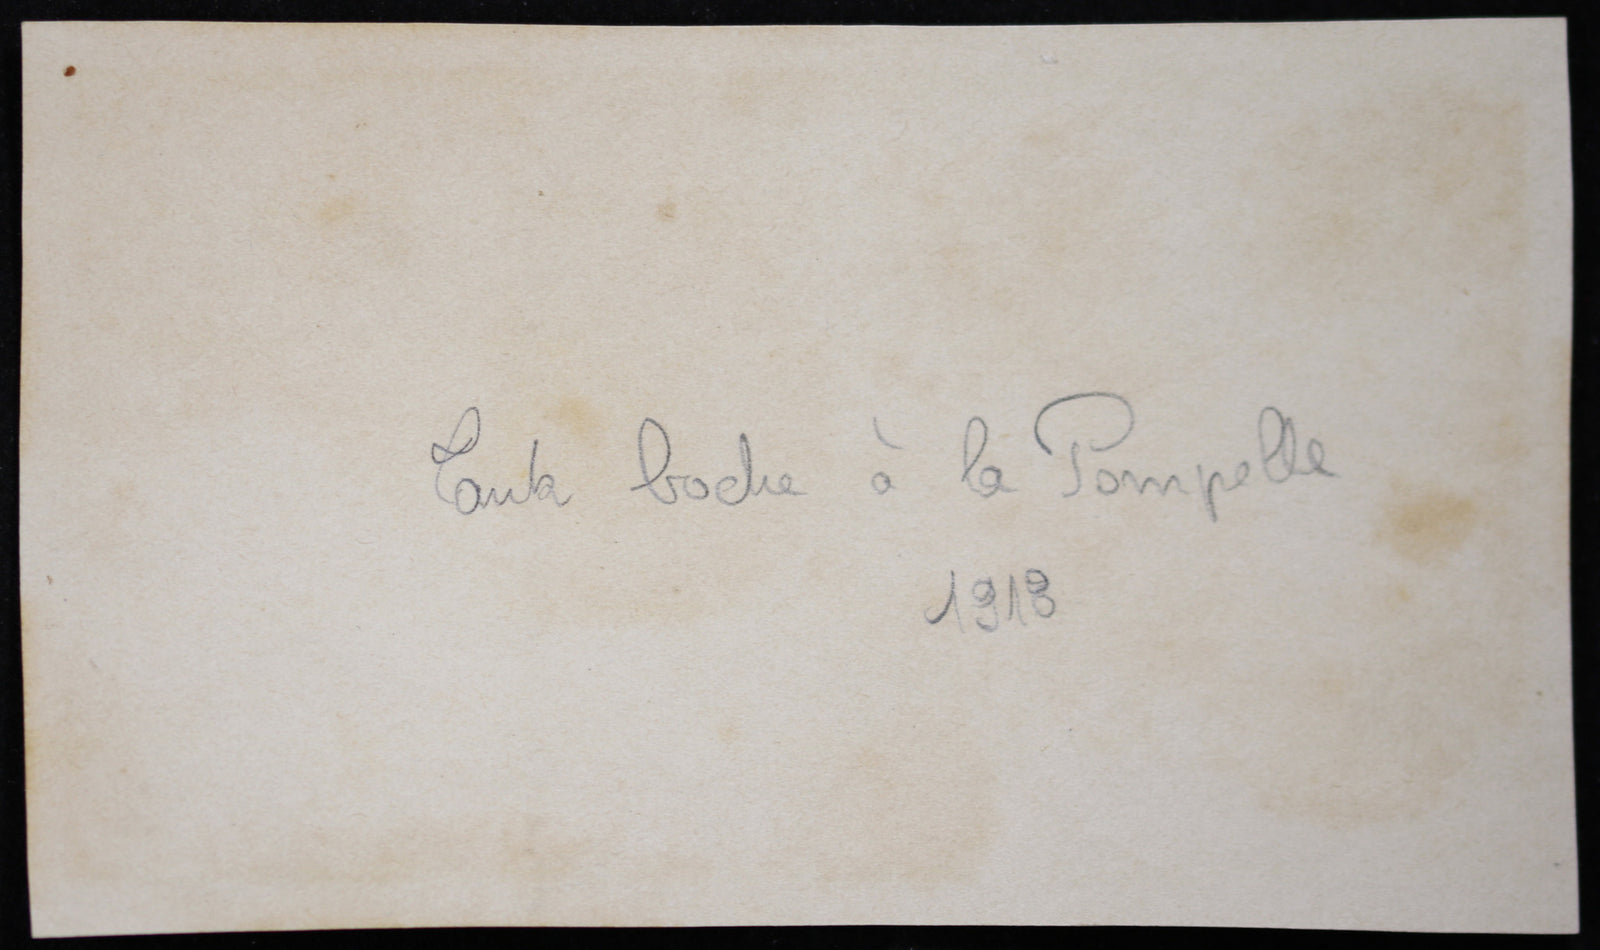 Tank boche à la Pompelle
1918